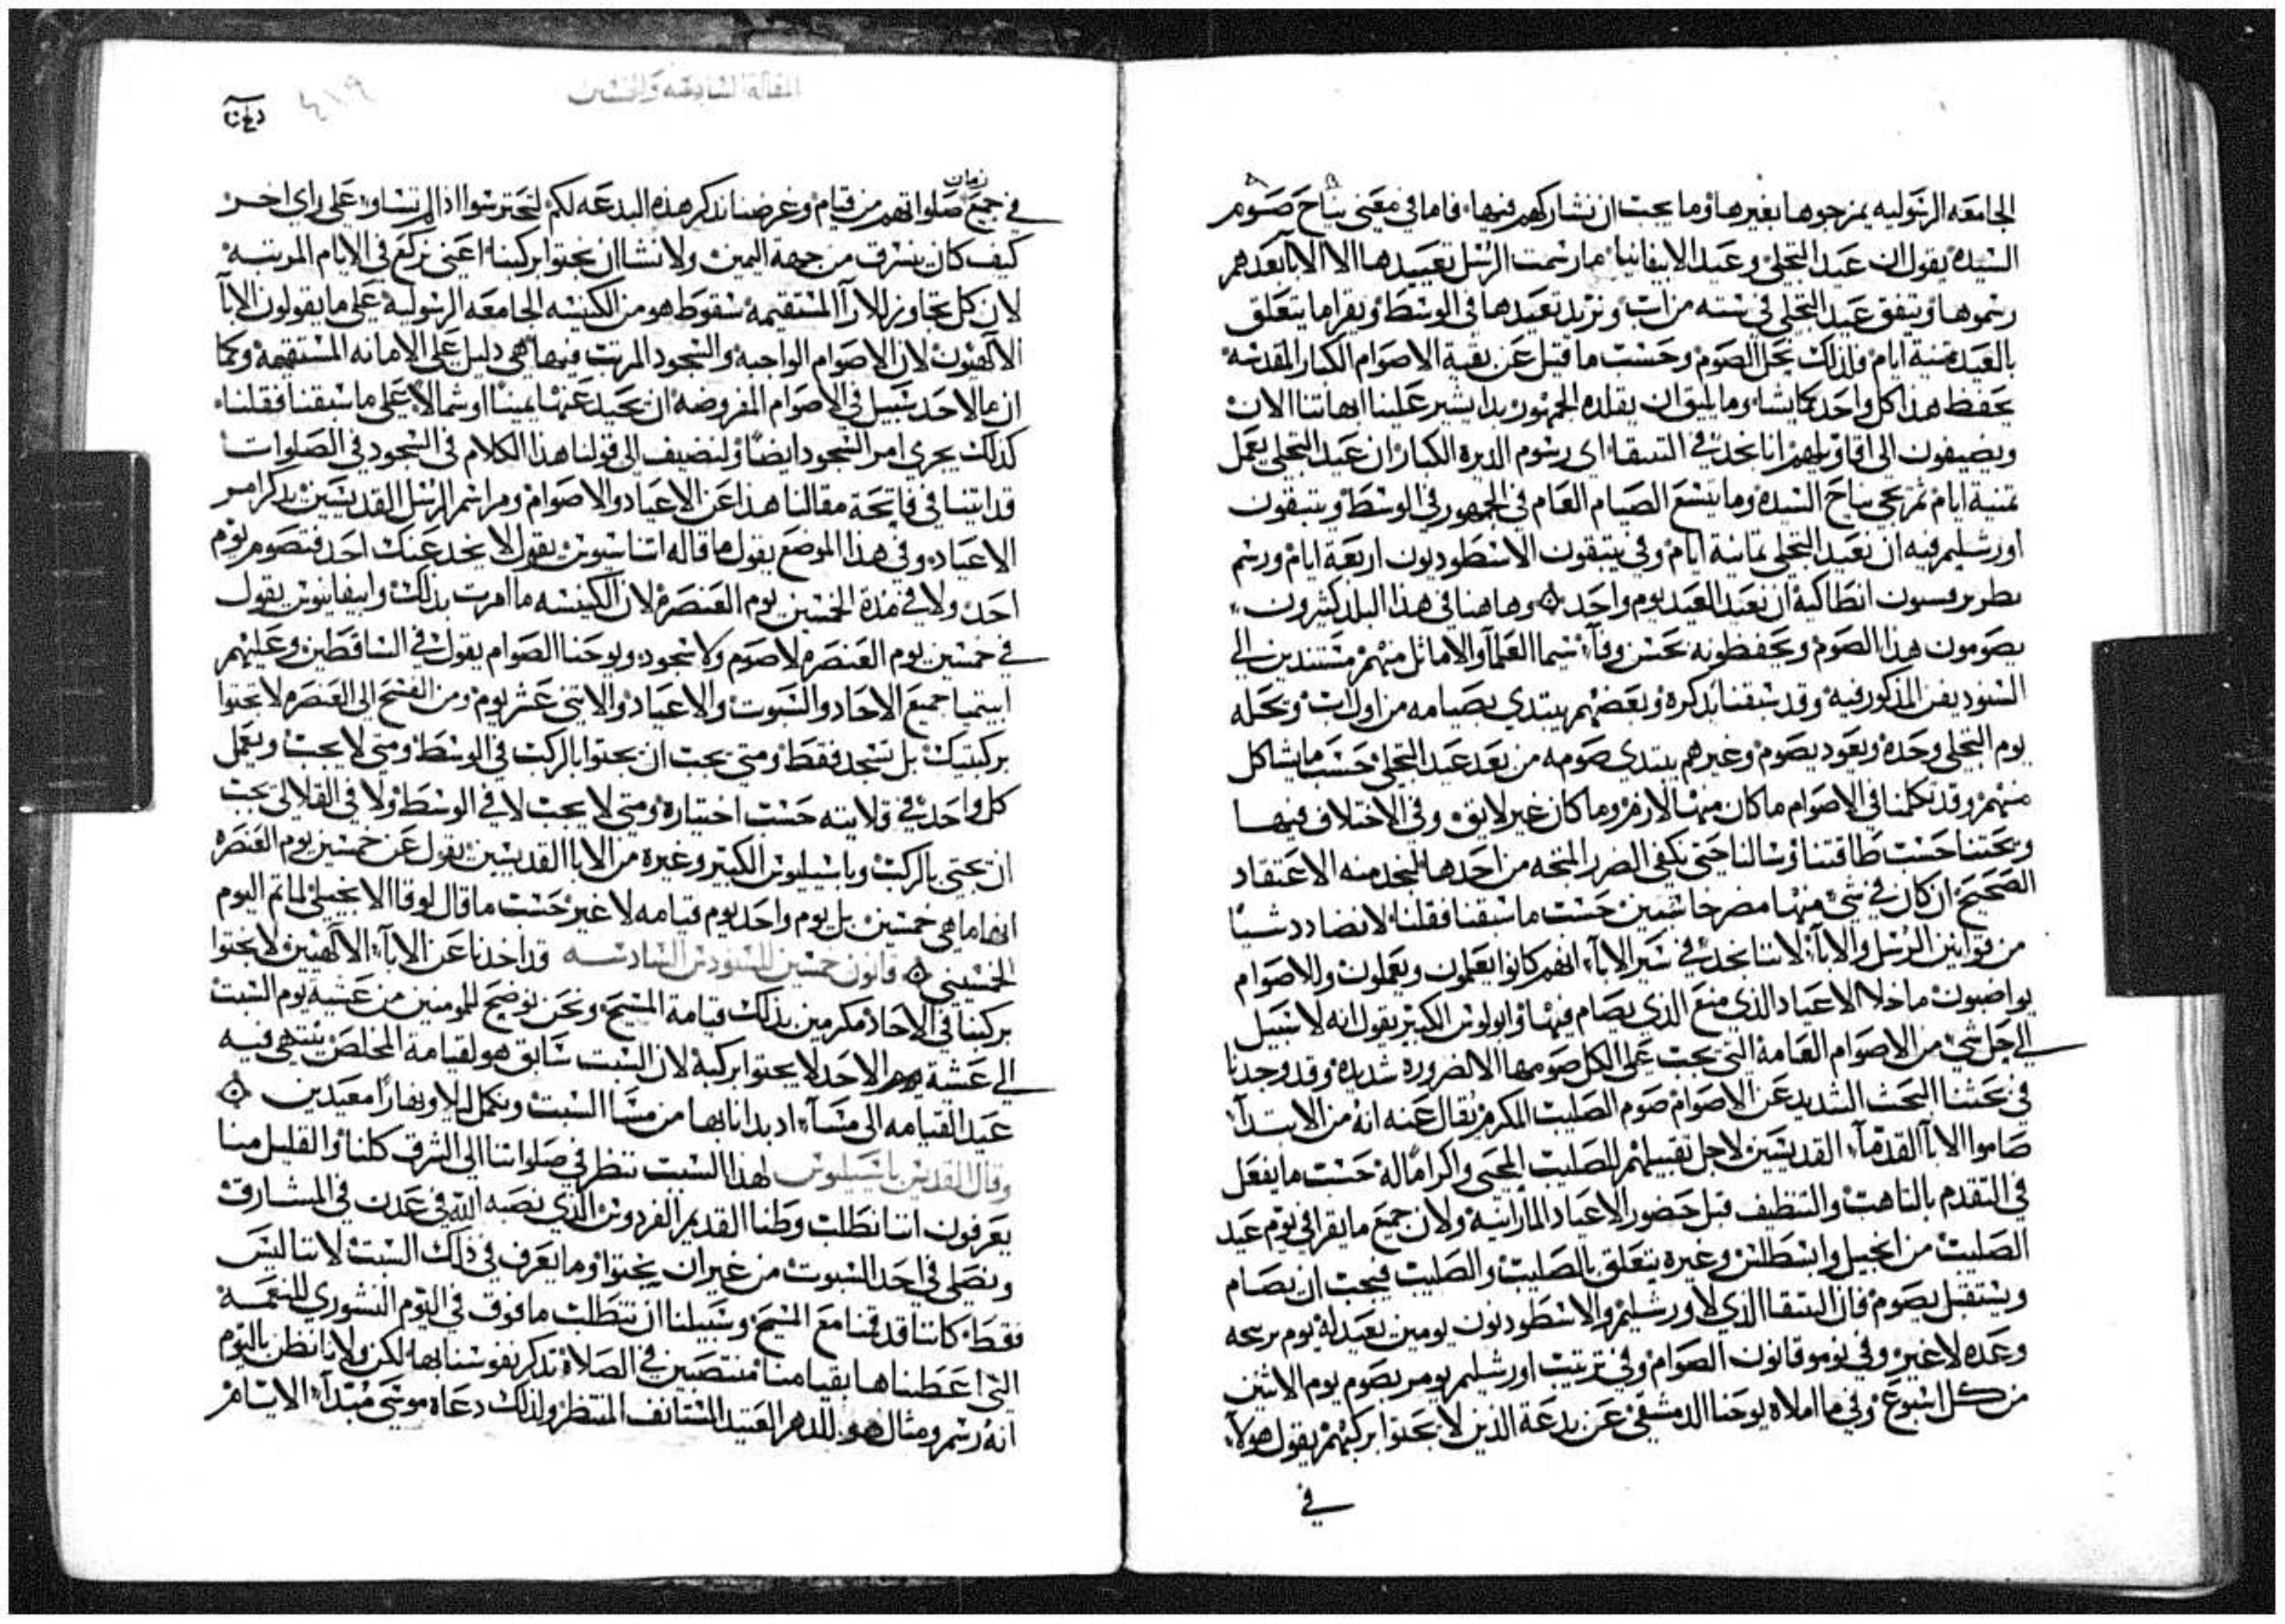 الجامعه الرسوليه يمزجوها بغيرها وما يجب ان نشاركهم فيها فاما في معني بناح صوم
السيده يقول ان عيد التجلي وعيد الابيفانيا ما رسمت الرسل تعييدها الا الابا بعدهم
رسموها ويتفق عيد التجلي في سته من اب ونريد تعيدها في الوسط ويقرا ما يتعلق
بالعيد ثمنية ايام ولذلك نحل الصوم وحسب ما قيل عن بقية الاصوام الكبار المقدسه
يحفظ هذا كل واحد كما يشا وما يليق ان يقلده الجمهور بدا يشير علينا ابهاتنا الان
ويضيفون الى اقاويلهم انا نجد في التبيقا اي رسوم الديره الكبار ان عيد التجلي يعمل
ثمنية ايام ثم يجي بناح السيده وما يتسع الصيام العام في الجمهور في الوسط وتبيقون
اورشليم فيه ان نعيد التجلي ثمانية ايام وفي تبيقون الاسطوديون اربعة ايام ورسم
بطريرسون انطاكية ان نعيد العيد يوم واحد وهاهنا في هذا البلد كثيرون
يصومون هذا الصوم ويحفظونه بحسن وفآء سيما العلمآ والاماثل منهم مستندين الى
السنوديقن المذكور فيه وقد سبقنا بذكره وبعضهم يبتدي بصيامه من اول اب ويحله
يوم التجلي وحده ويعود يصوم وغيرهم يبتدي صومه من بعد عيد التجلي حسب ما يشاكل
منهم وقد تكلمنا في الاصوام ما كان منها لازم وما كان غير لايق وفي الاختلاف فيها
وبحثنا حسب طاقتنا وسالنا حتى يكفي الضرر المتجه من احدها ليجد منه الاعتقاد
الصحيح ان كان في شي منها مضر حاشيين حسب ما سبقنا فقلنا لا نضادد شيا
من قوانين الرسل والابآ لاننا نجد في سير الابآ انهم كانوا يعلمون ويعملون وللاصوام
يواضبون ما خلا الاعياد الذي منع الذي يصام فيها وابولوس الكبير يقول انه لا سبيل
الى حل شي من الاصوام العامة التي يجب على الكل صومها الا لضروره شديده وقد وجدنا
في بحثنا البحث الشديد عن الاصوام صوم الصليب المكرم يقال عنه انه من الابتدآ
صاموا الابا القدمآ القديسين لاجل تقبيلهم للصليب المحيي واكراما له حسب ما يفعل
في التقدم بالتاهب والتنظيف قبل حضور الاعياد المارانية ولان جميع ما يقرا في يوم عيد
الصليب من انجيل وابسطلس وغيره يتعلق بالصليب والصليب فيجب ان يصام
ويستقبل بصوم فان التبيقا الذي لاورشليم والاسطوديون يومين نعيد له يوم برمحه
وعده لا غير وفي نومو قانون الصوام وفي ترتيب اورشليم يومر بصوم يوم الاثنين
من كل اسبوع وفي ما املاه يوحنا الدمشقي عن بدعة الذين لا يجثوا بركبهم يقول هولآ
في
المقاله السادسه والخمسين
٤١٩
في جميع زمان صلواتهم من قيام وغرضنا نذكر هذه البدعه لكم لتحترسوا اذ لم تتساو على راي اخر
كيف كان يسرق من جهة اليمين ولا نشا ان نجثوا بركبنا اعني نركع في الايام المرتبه
لان كل تجاوز للارآ المستقيمة سقوط هو من الكنيسه الجامعه الرسوليه على ما يقولون الابآ
الالهيون لان الاصوام الواجبه والسجود المرتب فيها هي دليل على الامانه المستقيمه وكما
ان ما لاحد سبيل في الاصوام المفروضه ان يحيد عنها يمينا او شمالا على ما سبقنا فقلنا
كذلك يجري امر السجود ايضا ولنضيف الى قولنا هذا الكلام في السجود في الصلوات
قد اتينا في فاتحة مقالنا هذا عن الاعياد والاصوام ومراسم الرسل القديسين بذكر امر
الاعياد وفي هذا الموضع يقول ما قاله اتناسيوس يقول لا يخدعنك احد فتصوم يوم
احد ولا في مدة الخمسين يوم العنصره لان الكنيسه ما امرت بذلك وابيفانيوس يقول
في خمسين يوم العنصره لا صوم ولا سجود ويوحنا الصوام يقول في الساقطين وعليهم
ابيتميا جميع الاحاد والسبوت والاعياد والاثني عشر يوم ومن الفسح الى العنصره لا تجثوا
بركبتيك بل تسجد فقط ومتى يجب ان يجثوا بالركب في الوسط ومتى لا يجب ويعمل
كل واحد في قلايته حسب اختياره ومتى لا يجب لا في الوسط ولا في القلالى يجب
ان يجثي بالركب وباسيليوس الكبير وغيره من الابا القديسين يقول عن خمسين يوم العنصره
انها ما هي خمسين بل يوم واحد يوم قيامه لا غير حسب ما قال لوقا الانجيلي لما تم اليوم
الخمسيني قانون خمسين للسنودس السادسه قد اخذنا عن الابآ الالهيين لا نجثوا
بركبنا في الاحاد مكرمين بذلك قيامة المسيح ونحن نوضح للمومنين من عشية يوم السبت
الى عشية يوم الاحد لا يجثوا بركبة لان السبت سابق هو لقيامة المخلص ينتهي فيه
عيد القيامه الى مسآء اذ بدانا بها من مسا السبت ونكمل ليلا ونهارا معيدين
وقال القديس باسيليوس لهذا السبب ننظر في صلواتنا الى الشرق كلنا والقليل منا
يعرفون اننا نطلب وطننا القديم الفردوس الذي نصبه الله في عدن في المشارق
ونصلي في احد السبوت من غير ان نجثوا وما يعرف في ذلك السبب لاننا ليس
فقط كاننا قد قمنا مع المسيح وسبيلنا ان نتطلب ما فوق في اليوم النشوري للنعمة
التي اعطيناها بقيامنا منتصبين في الصلاة نذكر نفوسنا بها لكن ولانا نظن باليوم
انه رسم ومثال هو للدهر العتيد المستانف المنتظر ولذلك دعاه موسى مبتدآ الايام